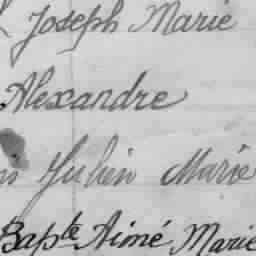 Joseph Marie
Alexandre
Julien Marie
Bapte Aimé Marie